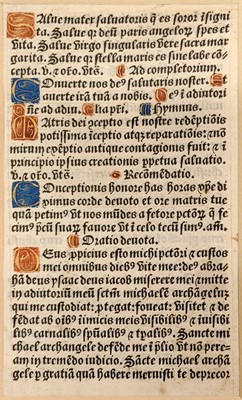 Alue mater saluatoris q̄ es soror isigni
ta. Salue qʒ dei paris angelorꝝ spes et
vita. Salue virgo singularis vere sacra mar
garita. Salue qʒ stella maris es sine labe cō
cepta. ⁊ oꝛo. vts. Ad completorium.
Onuerte nos deꝰ salutaris noster. Et
auerte irā tuā a nobis. Deꝰ ī adiutori
Dn̄e ad adiu. Hymnus.
Atris dei ꝯceptio est nostre redēptiōis
potissima īceptio atqʒ reparatiōis: nō
mirum exēptio antique contagionis fuit: ⁊ ī
principio ipsius creationis ꝑpetua saluatio.
⁊ oꝛo. vts. Recōmēdatio.
Onceptionis honore has horas
ximus corde deuoto et ore matris tue
quā petimꝰ vt nos mūdes a fetore pctōꝝ q̄ fe
cimꝰ vt ī celo tecū simꝰ. am̄.
Oratio deuota.
Eus ꝓpicius esto michi pctōri ⁊ custos
mei omnibus diebꝰ vite mee: deꝰ abra
hā deus ysaac deus iacob miserere mei ⁊ mitte
in adiutoriū meū sctm̄ michaelē archāgelū
qui me custodiat: ꝓtegat: foueat: visitet ⁊ de
fēdat ab oībꝰ īimicis meis visibilibꝰ ⁊ īuisibi
libꝰ carnalibꝰ spūalibꝰ ⁊ tp̄alibꝰ. Sancte mi
chael archangele defēde me ī p̄lio vt nō pere-
am in tremēdo iudicio. Sācte michael archā
gele ꝑ gratiā quā habere meruisti te deprecor